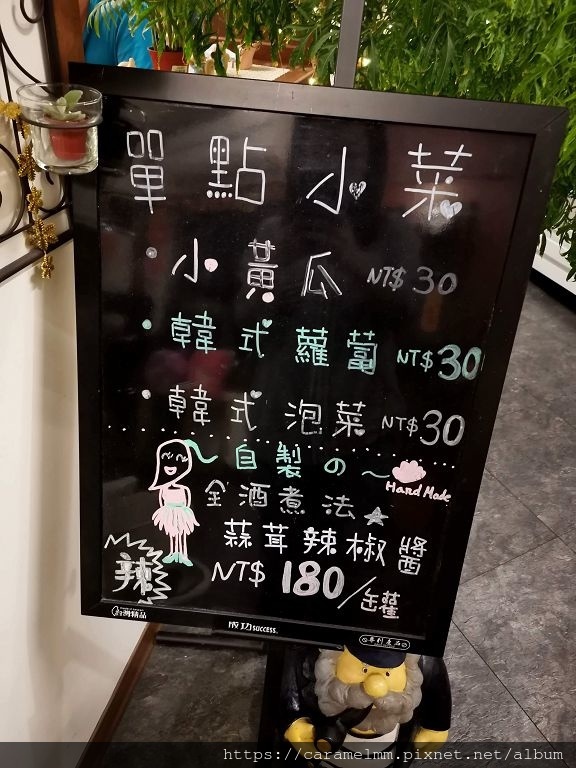 單點小菜
小黃瓜 NT$30
韓式蘿蔔 NT$30
韓式泡菜 NT$30
～自製の～
Hand Made
全酒煮法
蒜茸辣椒醬
辣 NT$180/罐
台灣精品
成功 SUCCESS.
專利產品
https://caramelmm.pixnet.net/album